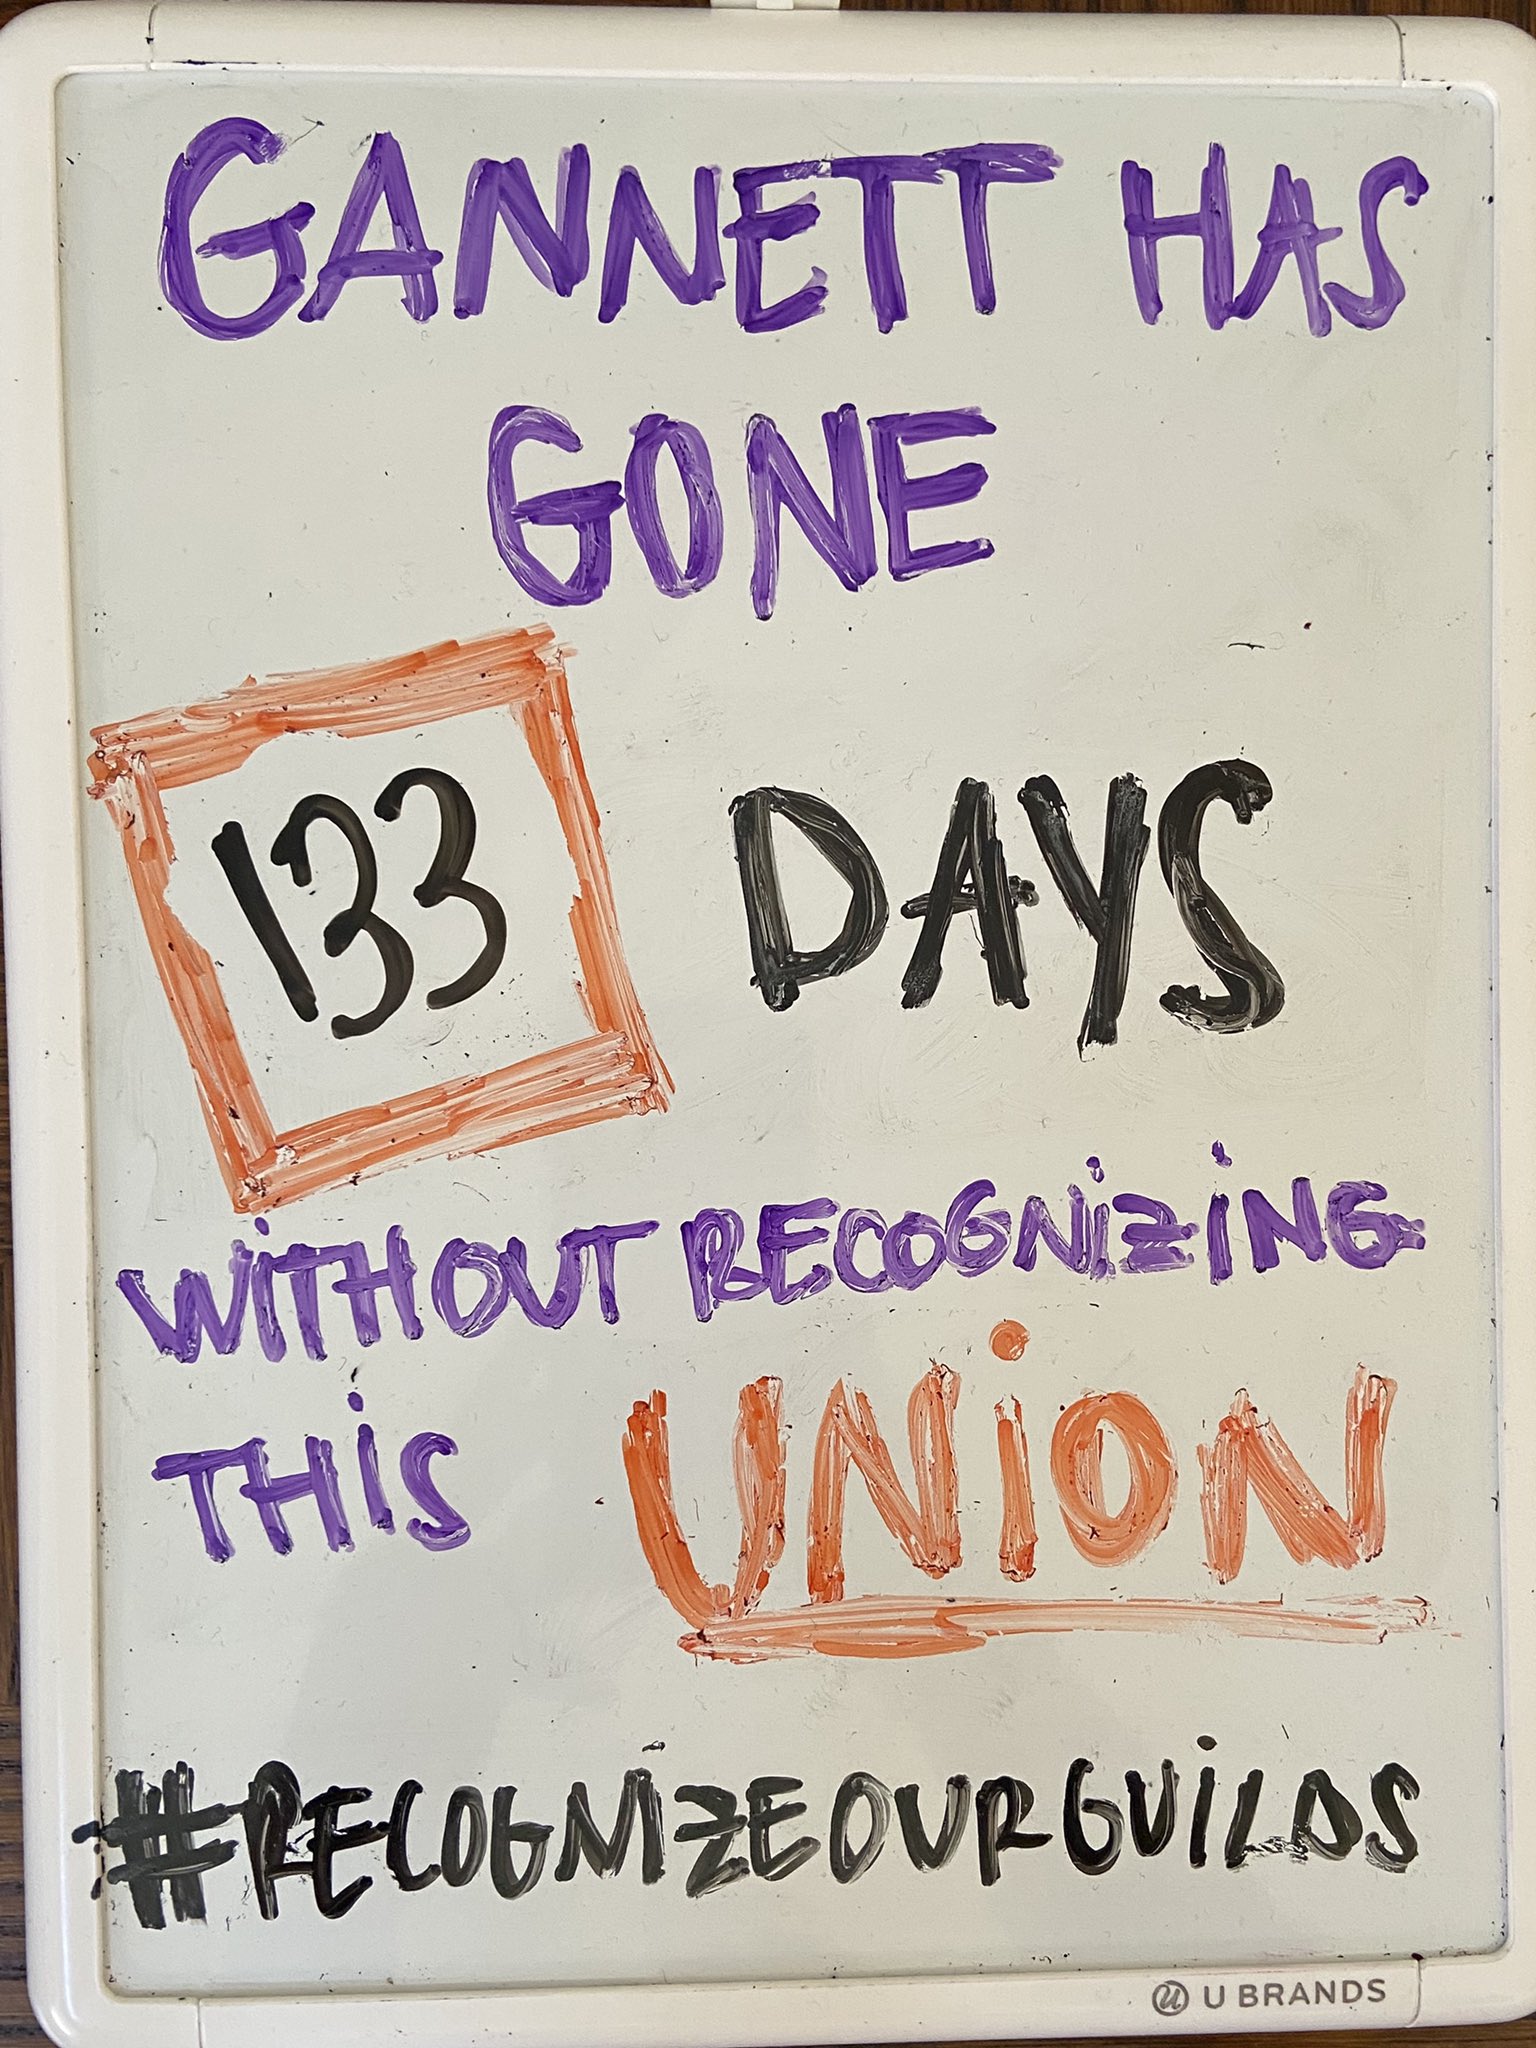 GANNETT HAS
GONE
133 DAYS
WiTHOUT RECOGNiZiNG
THiS UNiON
#RECOGNiZEOURGUiLDS
U BRANDS